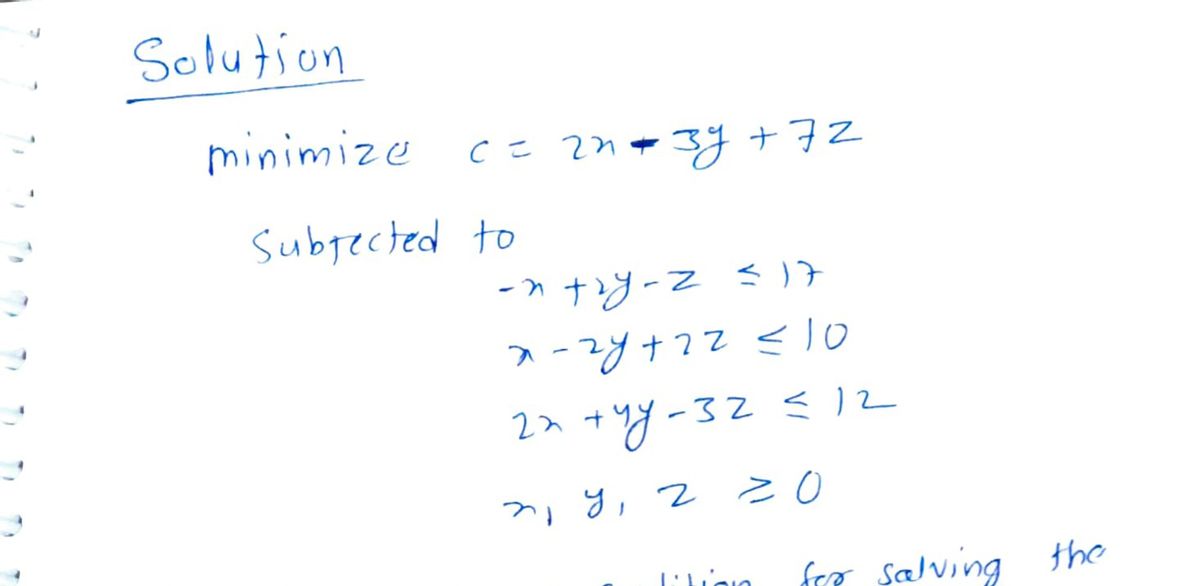 Solution
minimize c = 2x - 3y + 7z
Subjected to
-x + 2y - z ≤ 17
x - 2y + 2z ≤ 10
2x + 4y - 3z ≤ 12
x, y, z ≥ 0
for solving the